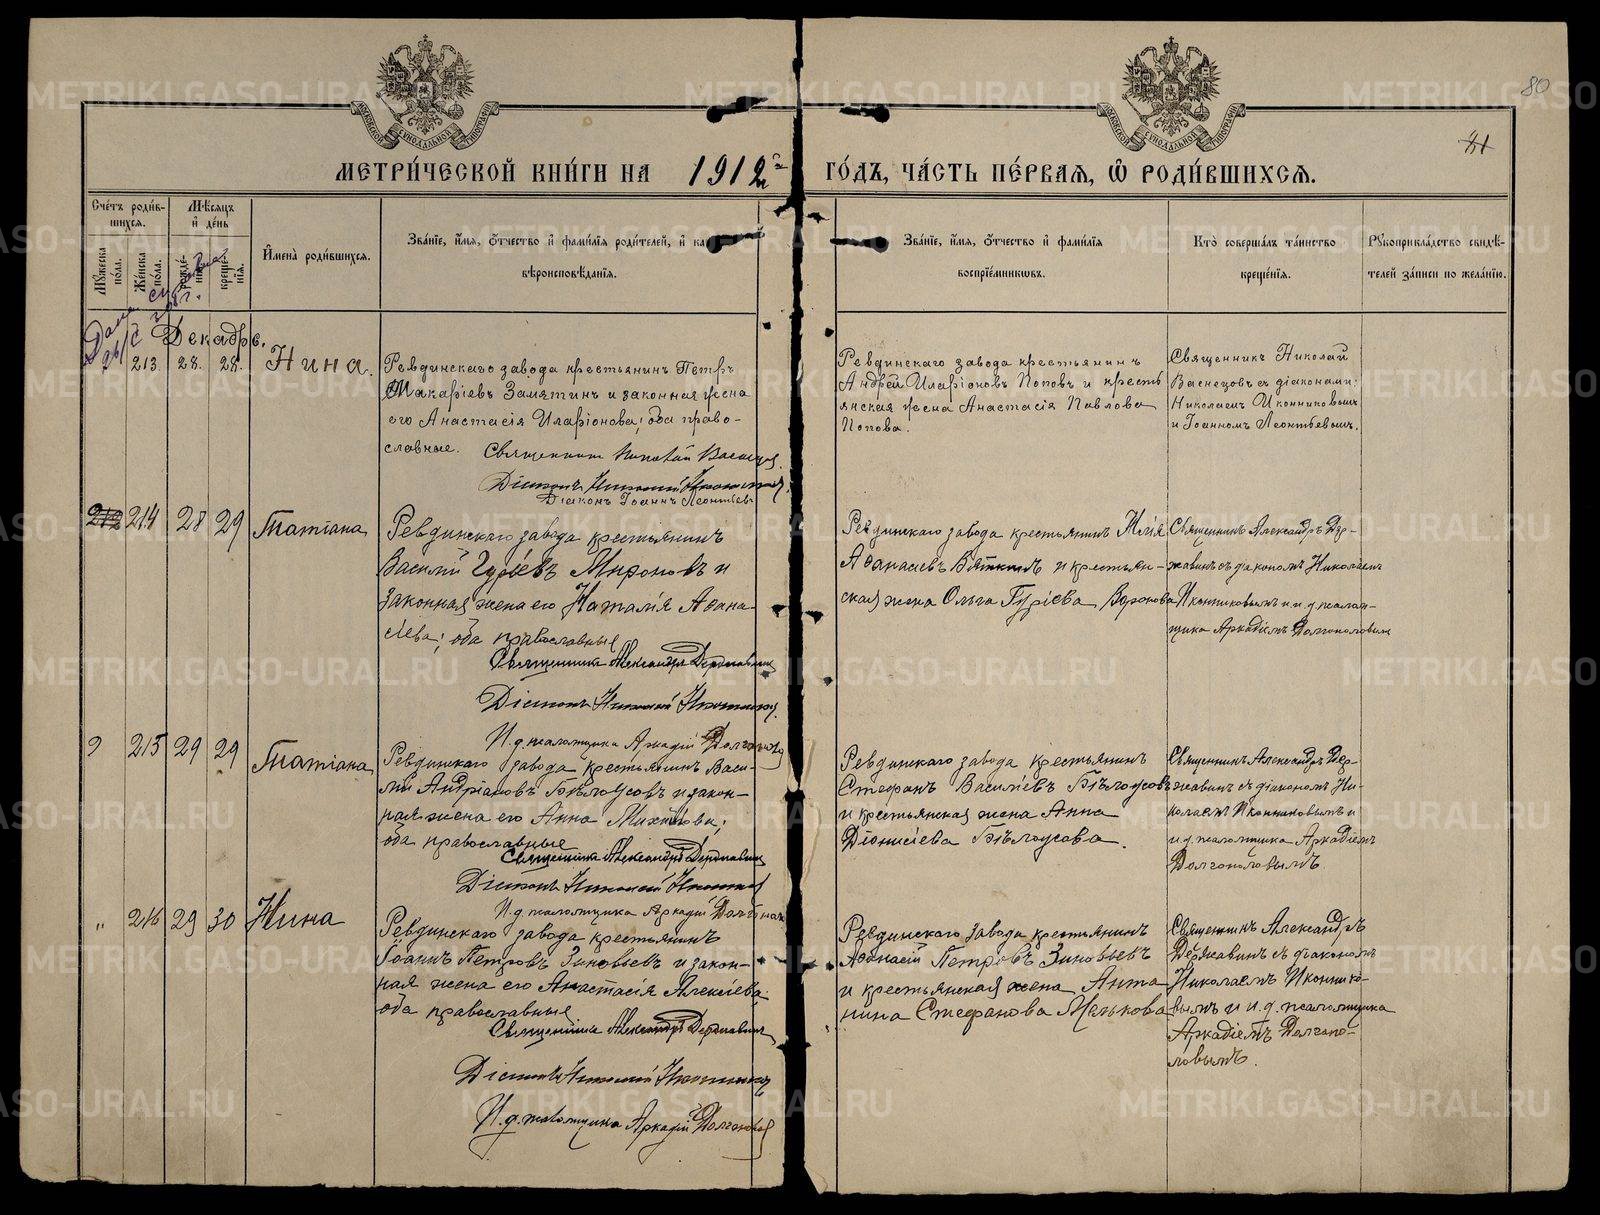 МЕТРИ́ЧЕСКОЙ КНИ́ГИ НА 1912й ГО́ДЪ, ЧА́СТЬ ПЕ́РВАЯ, Ѡ РОДИ́ВШИХСЯ.
80
81
Сче́тъ роди́в-
шихся.
Мѣ́сяцъ
и де́нь
Мꙋ́жеска по́ла.
Же́нска по́ла.
рожде́нїя.
креще́нїя.
Имена̀ роди́вшихся.
Зва́нїе, и́мя, о́тчество и фами́лїя роди́телей, и ка
вѣроисповѣ́данїя.
Зва́нїе, и́мя, о́тчество и фами́лїя
воспрїе́мниковъ.
Кто̀ соверша́лъ та́инство
креще́нїя.
Рꙋкоприкла́дство свидѣ́-
телей за́писи по жела́нїю.
Декабрь.
213 28. 28. Нина.
Ревдинскаго завода крестьянинъ Петръ
Макаріевъ Замятинъ и законная жена
его Анастасія Иларіонова; оба право-
славные. Священникъ Николай Васнецов.
Діаконъ Николай Иконников.
Діаконъ Іоаннъ Леонтьев
Ревдинскаго завода крестьянинъ
Андрей Иларіоновъ Поповъ и кресть
янская жена Анастасія Павлова
Попова.
Священникъ Николай
Васнецовъ съ діаконами:
Николаемъ Иконниковымъ
и Іоанномъ Леонтьевымъ.
212 214 28 29 Татіана
Ревдинскаго завода крестьянинъ
Василій Гурьевъ Мироновъ и
законная жена его Наталія Афана-
сіева; оба православные
Священникъ Александръ Державинъ
Діаконъ Николай Иконников.
И. д. псаломщика Аркадій Долгополов
Ревдинскаго завода крестьянинъ Илія
Афанасіевъ Вяткинъ и крестьян-
ская жена Ольга Гуріева Воронова
Священникъ Александръ Дер-
жавинъ съ діакономъ Николаемъ
Иконниковымъ и и. д. псалом-
щика Аркадіемъ Долгополовым
" 215 29 29 Татіана
Ревдинскаго завода крестьянинъ Васи-
лій Андріановъ Бѣлоусовъ и закон-
ная жена его Анна Михайлова;
оба православные
Священникъ Александръ Державинъ
Діаконъ Николай Иконников
И. д. псаломщика Аркадій Долгопол
Ревдинскаго завода крестьянинъ
Стефанъ Василіевъ Бѣлоусовъ
и крестьянская жена Анна
Діонисіева Бѣлоусова.
Священникъ Александръ Дер-
жавинъ съ діакономъ Ни-
колаемъ Иконниковымъ и
и. д. псаломщика Аркадіемъ
Долгополовымъ.
" 216 29 30 Нина
Ревдинскаго завода крестьянинъ
Іоаннъ Петровъ Зиновьевъ и закон-
ная жена его Анастасія Алексіева;
оба православные
Священникъ Александръ Державинъ
Діаконъ Николай Иконников
И. д. псаломщика Аркадій Долгополов
Ревдинскаго завода крестьянинъ
Афанасій Петровъ Зиновьевъ
и крестьянская жена Анто
нина Стефанова Мелькова
Священникъ Александръ
Державинъ съ діакономъ
Николаемъ Иконнико-
вымъ и и. д. псаломщика
Аркадіемъ Долгопо-
ловымъ.
METRIKI.GASO-URAL.RU